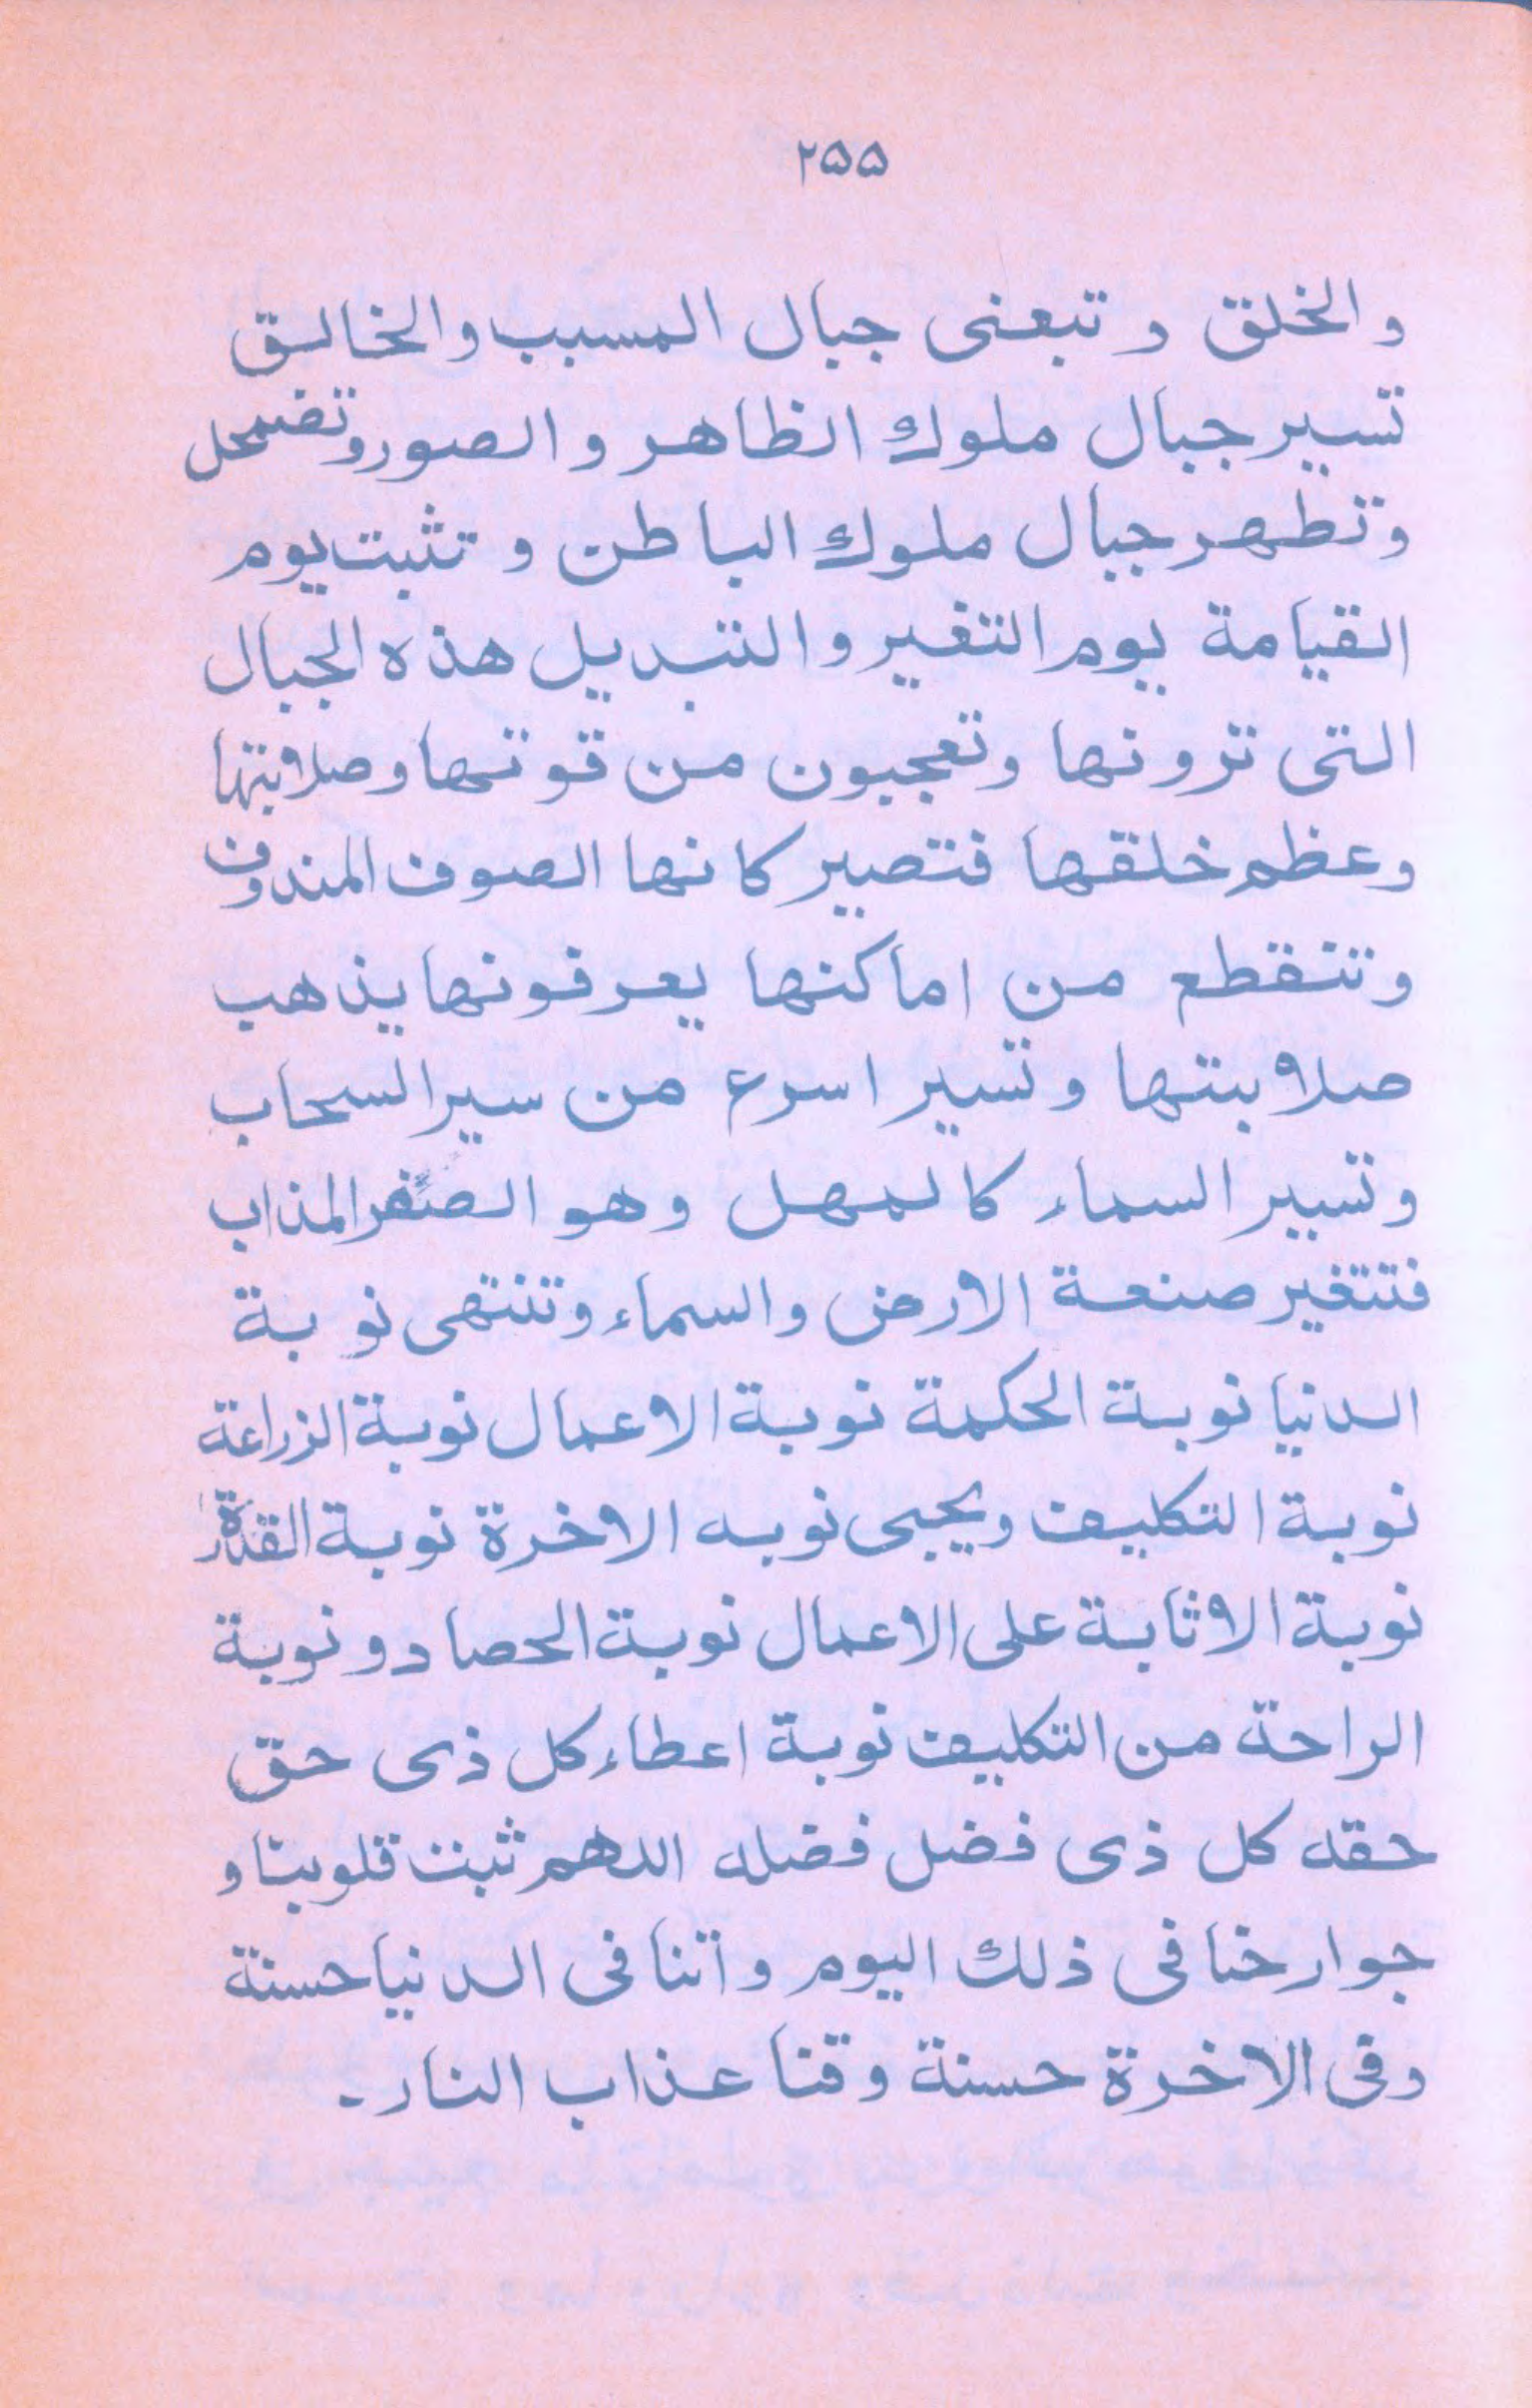 ٢٥٥
والخلق و تبعنى جبال المسبب والخالق
تسير جبال ملوك الظاهر و الصور وتضمحل
وتطهر جبال ملوك الباطن و تثبت يوم
القيامة يوم التغير والتبديل هذه الجبال
التى ترونها وتعجبون من قوتها وصلابتها
وعظم خلقها فتصير كانها الصوف المندوف
وتنقطع من اماكنها يعرفونها يذهب
صلابتها وتسير اسرع من سير السحاب
وتسير السماء كالمهل وهو الصفر المذاب
فتتغير صنعة الارض والسماء وتنتهى نوبة
الدنيا نوبة الحكمة نوبة الاعمال نوبة الزراعة
نوبة التكليف ويجيى نوبه الاخرة نوبة القدرة
نوبة الاثابة على الاعمال نوبة الحصاد ونوبة
الراحة من التكليف نوبة اعطاء كل ذى حق
حقه كل ذى فضل فضله اللهم ثبت قلوبنا و
جوارخنا فى ذلك اليوم واتنا فى الدنيا حسنة
وفى الاخرة حسنة وقنا عذاب النار۔